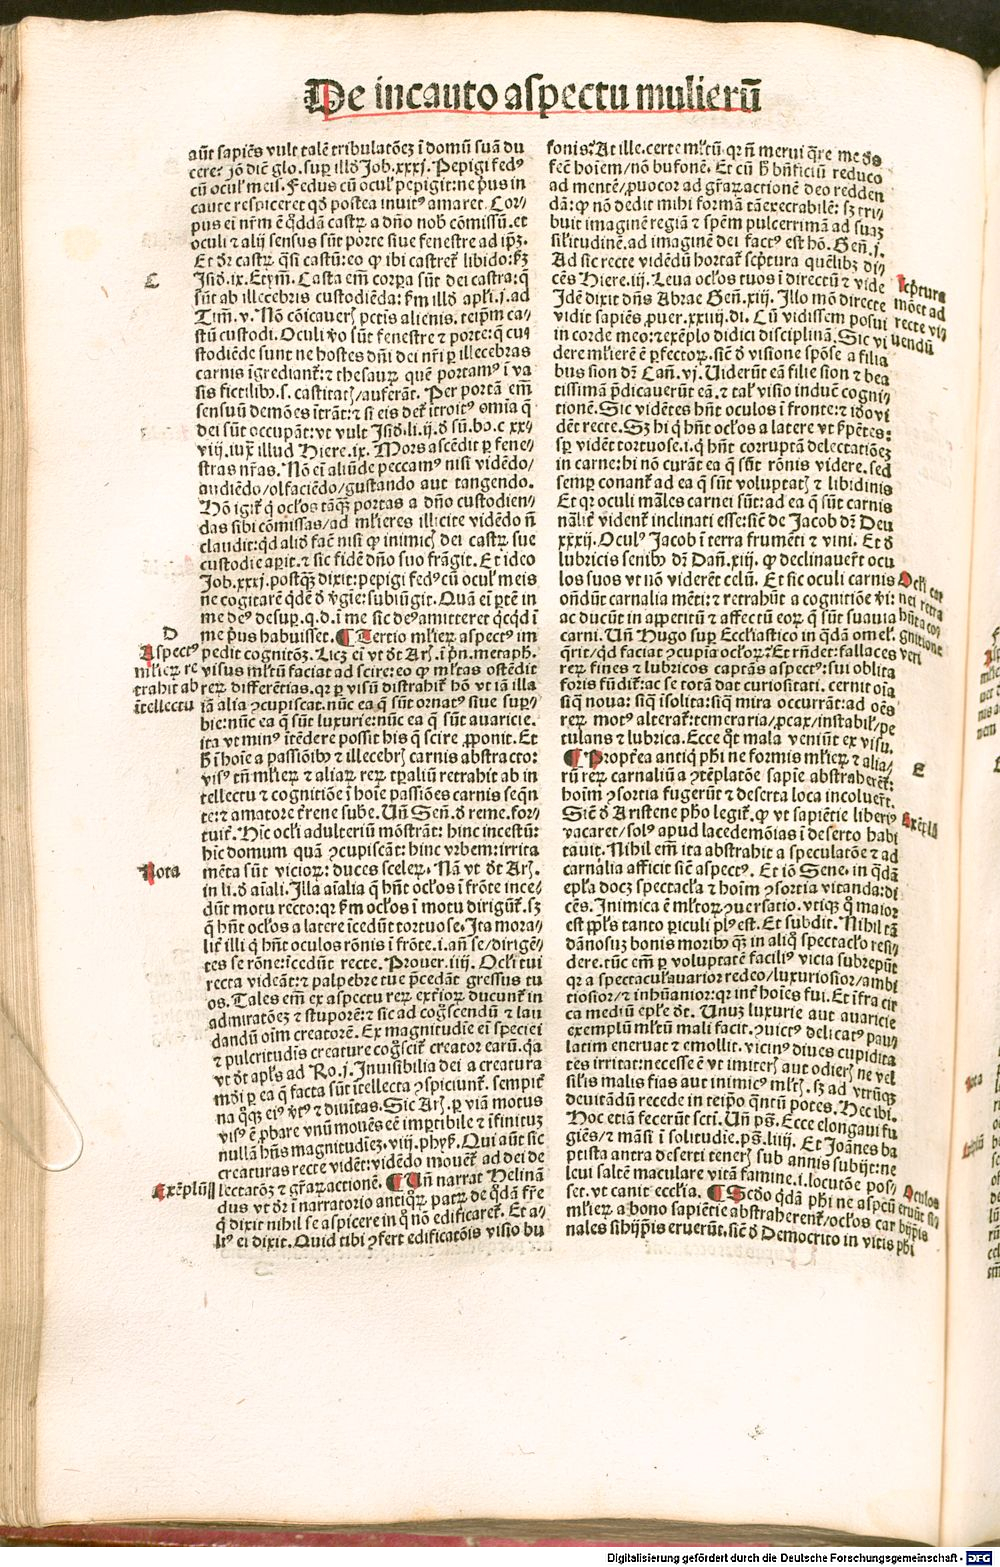 De incauto aspectu mulierū
aūt sapiēs vult talē tribulatōeꝫ ī domū suā du
cere? jō diē glo. suꝑ illđ Job. xxxj. Pepigi fedꝰ
cū oculꝭ meis. Fedus cū oculꝭ pepigit: ne pͥus in
caute respiceret qđ postea inuitꝰ amaret. Cor-
pus ei nr̄m ē q̄ddā castrꝫ a dn̄o nob̄ cōmissū. et
oculi ⁊ alij sensus sūt porte siue fenestre ad ip̄ꝫ.
Et dr̄ castrꝫ q̄si castū: eo ꝙ ibi castret̉ libido: ẜꝫ
Jsiđ. ix. Etym̄. Casta em̄ corꝑa sūt dei castra: q̄
sūt ab illecebris custodiēda: ẜm illđ apl̄i. j. ad
Tim̄. v. Nō cōicauerꝭ pctis alienis. teip̄m ca-
stū custodi. Oculi ꝟo sūt fenestre ⁊ porte: q̄ cu-
stodiēde sunt ne hostes dn̄i dei nr̄i ꝑ illecebras
carnis īgrediant̉: ⁊ thesaurꝫ quē portamꝰ ī va
sis fictilibꝫ. s. castitatꝭ/auferāt. Per portā em̄
sensuū demōes ītrāt: ⁊ si eis det̉ ītroitꝰ om̄ia q̄
dei sūt occupāt: vt vult Jsiđ. li. ij. đ sū. bo. c xx-
viij. iux̄ illud Hiere. ix. Mors ascēdit ꝑ fene-
stras nr̄as. Nō ei aliūde peccamꝰ nisi vidēdo/
audiēdo/olfaciēdo/gustando aut tangendo.
Hō igit̉ q̄ ocl̄os tāqꝫ portas a dn̄o custodien-
das sibi cōmissas/ad ml̄ieres illicite vidēdo n̄
claudit: qđ aliđ facē nisi ꝙ inimicꝭ dei castrꝫ sue
custodie aꝑit. ⁊ sic fidē dn̄o suo frāgit. Et ideo
Job. xxxj. postqꝫ dixit: pepigi fedꝰ cū oculꝭ meis
ne cogitarē qđē đ ꝟgie: subiūgit. Quā ei ꝑtē in
me deꝰ desuꝑ. q.d. ī me sic deꝰ amitteret qͥcqđ ī
me pͥus habuisset. ¶ Tertio ml̄ierꝫ aspectꝰ im
pedit cognitōꝫ. Licꝫ ei vt đt Arꝭ. ī pͥn. metaph.
visus ml̄tū faciat ad scire: eo ꝙ ml̄tas ostēdit
rerꝫ differētias. qꝛ ꝑ visū distrahit̉ hō vt iā illa
iā alia ꝯcupiscat. nūc ea q̄ sūt ornatꝰ siue suꝑ-
bie: nūc ea q̄ sūt luxurie: nūc ea q̄ sūt auaricie.
ita vt minꝰ ītēdere possit his q̄ scire ꝓponit. Et
ħ ī hoīe a passiōibꝫ ⁊ illecebrꝭ carnis abstracto:
visꝰ tn̄ ml̄ierꝫ ⁊ aliarꝫ rerꝫ tꝑaliū retrahit ab in
tellectu ⁊ cognitiōe ī hoīe passiōes carnis seqn̄
te: ⁊ amatore t̉rene sube. Un̄ Sen̄. đ reme. for-
tuit̉. Hīc ocl̄i adulteriū mōstrāt: hinc incestū:
hīc domum quā ꝯcupiscāt: hinc vrbem: irrita
mēta sūt viciorꝫ: duces scelerꝫ. Nā vt đt Arꝭ.
in li. đ aīali. Illa aīalia q̄ hn̄t ocl̄os ī frōte ince-
dūt motu recto: qꝛ ẜm ocl̄os ī motu dirigūt̉. sꝫ
q̄ hn̄t ocl̄os a latere īcedūt tortuose. Jta mora-
lit̉ illi q̄ hn̄t oculos rōnis ī frōte. i. an̄ se/dirigē-
tes se rōne: īcedūt recte. Prouer. iiij. Ocl̄i tui
recta videāt: ⁊ palpebre tue p̄cedāt gressus tu
os. Tales em̄ ex aspectu rerꝫ exteriorꝫ ducunt̉ in
admiratōeꝫ ⁊ stuporē: ⁊ sic ad cogͦscendū ⁊ lau
dandū oim creatorē. Ex magnitudīe ei speciei
⁊ pulcritudīs creature cogͦscit̉ creator earū. q̄a
vt đt apl̄s ad Ro. j. Jnuisibilia dei a creatura
mūdi ꝑ ea q̄ facta sūt ītellecta ꝯspiciunt̉. sempit̉
na qͦqꝫ eiꝰ ꝟtꝰ ⁊ diuītas. Sic Arꝭ. ꝑ viā motus
visꝰ ē ꝓbare vnū mouēs eē imꝑtibile ⁊ īfinitꝫ
nullā hn̄s magnitudīeꝫ. viij. phyẜ. Qui aūt sic
creaturas recte vidēt: vidēdo mouēt̉ ad dei de
lectatōꝫ ⁊ gr̄arꝫactionē. ¶ Un̄ narrat Helinā
dus vt đr ī narratorio antiqͦrꝫ patrꝫ de qͦdā fr̄e
q̄ dixit nihil se aspicere in qͦ nō edificaret̉. Et a-
liꝰ ei dixit. Quid tibi ꝯfert edificatōis visio bu
C
D
Aspectꝰ
ml̄ierꝫ re
trahit ab
ītellectu
Nota
Exēplū
fonis? At ille. certe ml̄tū. qꝛ n̄ merui qͥre me đꝰ
fecē hoīem/nō bufonē. Et cū ħ bn̄ficiū reduco
ad mentē, ꝓuocor ad gr̄arꝫactionē deo redden
dā: ꝙ nō dedit mihi formā tā execrabilē: sꝫ tri-
buit imaginē regiā ⁊ spēm pulcerrimā ad suaꝫ
sil̄itudinē. ad imaginē dei factꝰ est hō. Gen̄. j.
Ad sic recte vidēdū hortat̉ scpͥtura quēlibꝫ di-
cēs Hiere. iij. Leua ocl̄os tuos ī directū ⁊ vide
Jdē dixit dn̄s Abrae Gen̄. xiij. Illo mō directe
vidit sapiēs ꝓuer. xxiiij. di. Cū vidissem posui
in corde meo: ⁊ exēplo didici disciplinā. Sic vi
dere ml̄ierē ē ꝑfectorꝫ. sic̄ đ visione spōse a filia
bus sion dr̄ Cañ. vj. Uiderūt eā filie sion ⁊ bea
tissimā p̄dicauerūt eā. ⁊ tal̄ visio induc̄ cogni-
tionē. Sic vidētes hn̄t oculos ī fronte: ⁊ iđo vi
dēt recte. Sꝫ hi q̄ hn̄t ocl̄os a latere vt ẜpētes:
sꝑ vidēt tortuose. i. q̄ hn̄t corruptā delectationeꝫ
in carne: hi nō curāt ea q̄ sūt rōnis videre. sed
semꝑ conant̉ ad ea q̄ sūt voluptatꝭ ⁊ libidinis
Et qꝛ oculi mal̄es carnei sūt: ad ea q̄ sūt carnis
nāl̄it̉ vident̉ inclinati esse: sic̄ de Jacob dr̄ Deu
xxxij. Oculꝰ Jacob ī terra frumēti ⁊ vini. Et đ
lubricis senibꝫ dr̄ Dañ. xiij. ꝙ declinauerūt ocu
los suos vt nō viderēt celū. Et sic oculi carnis
on̄dūt carnalia mēti: ⁊ retrahūt a cognitiōe ꝟi:
ac ducūt in appetitū ⁊ affectū eorꝫ q̄ sūt suauia
carni. Un̄ Hugo suꝑ Eccl̄iastico in qͣdā omel̄.
qͥrit/qđ faciat ꝯcupia ocl̄orꝫ? Et rn̄det: fallaces
rerꝫ fines ⁊ lubricos captās aspectꝰ: sui oblita
foris fūdit̉: ac se totā dat curiositati. cernit oīa
siqͣ noua: siqͣ īsolita: siqͣ mira occurrāt: ad oēs
rerꝫ motꝰ alterat̉: temeraria/ꝓcax/instabil̄/pe
tulans ⁊ lubrica. Ecce qͦt mala veniūt ex visu.
¶ Propt̉ea antiqͥ phi ne formis ml̄ierꝫ ⁊ alia-
rū rerꝫ carnaliū a ꝯtēplatōe sapīe abstraherēt̉:
hoīm ꝯsortia fugerūt ⁊ deserta loca incoluerūt.
Sic̄ đ Aristene pho legit̉. ꝙ vt sapiētie liberiꝰ
vacaret/solꝰ apud lacedemōias ī deserto habi
tauit. Nihil em̄ ita abstrahit a speculatōe ⁊ ad
carnālia afficit sic̄ aspectꝰ. Et iō Sene. in qͣdā
epl̄a docꝫ spectacl̄a ⁊ hoīm ꝯsortia vitanda: di
cēs. Jnimica ē ml̄torꝫ ꝯuersatio. vtiqꝫ qͦ maior
est ppl̄s tanto periculi plꝰ est. Et subdit. Nihil tā
dānosuꝫ bonis moribꝫ qꝫ in aliqͦ spectacl̄o resi-
dere. tūc em̄ ꝑ voluptatē faciliꝰ vicia subrepūt
qꝛ a spectacul̄ auarior redeo/luxuriosior/ambi
tiosior/⁊ inhūanior: qꝛ int̉ hoīes fui. Et īfra cir
ca mediū epl̄e đt. Unuꝫ luxurie aut auaricie
exemplū ml̄tū mali facit. ꝯuictꝰ delicatꝰ pau-
latim eneruat ⁊ emollit. vicinꝰ diues cupidita
tes irritat: necesse ē vt imiterꝭ aut odierꝭ ne vel
sil̄is malis fias aut inimicꝰ ml̄tꝭ. sꝫ ad vtrūqꝫ
deuitādū recede in teip̄o qn̄tū potes. Hec ibi.
Hoc etiā fecerūt scti. Un̄ ps̄. Ecce elongaui fu
giēs/⁊ māsi ī solitudīe. ps̄. liiij. Et Joānes ba
ptista antra deserti tenerꝭ sub annis subijt: ne
leui saltē maculare vitā famine. i. locutōe pos-
set. vt canit eccl̄ia. ¶ Scđo qͦdā phi ne aspctū
ml̄ierꝫ a bono sapiētie abstraherent̉/ocl̄os car
nales sibijp̄is eruerūt. sic̄ đ Democrito in vitis phi
Scpͥtura
mōet ad
recte vi-
dendū
Ocl̄i car
nei retra
hūt a co
gnitione
veri
E
Exēplū
Oculos
eruūt si
bijp̄is
Digitalisierung gefördert durch die Deutsche Forschungsgemeinschaft - DFG